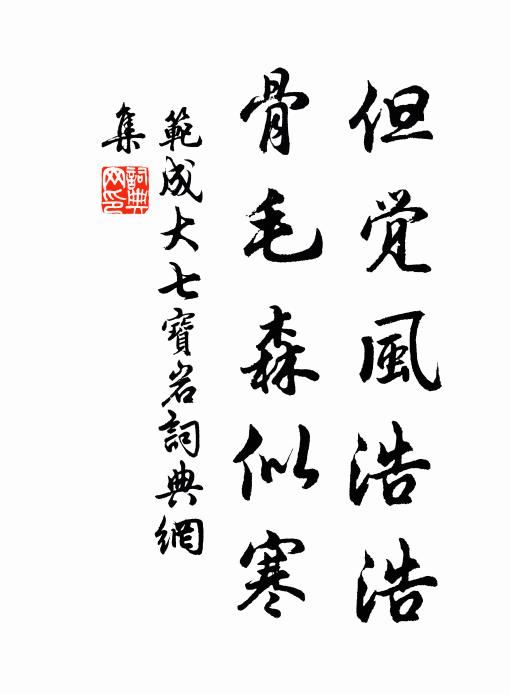 但覚風浩浩
骨毛森似寒
範成大七寶岩詞典網
集
詞典
网印